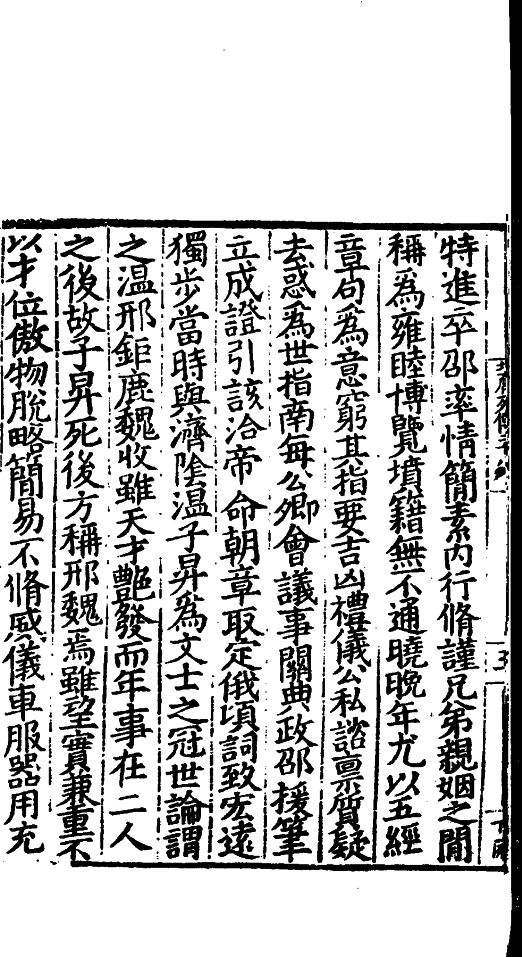 特進卒邵率情簡素內行脩謹兄弟親姻之閒
稱爲雍睦博覽墳籍無不通曉晚年尤以五經
章句爲意窮其指要吉凶禮儀公私諮禀質疑
去惑爲世指南每公卿會議事關典政邵援筆
立成證引該洽帝命朝章取定俄頃詞致宏遠
獨步當時與濟陰温子昇爲文士之冠世論謂
之温邢鉅鹿魏收雖天才艷發而年事在二人
之後故子昇死後方稱邢魏焉雖望實兼重不
以才位傲物脫略簡易不脩威儀車服器用充